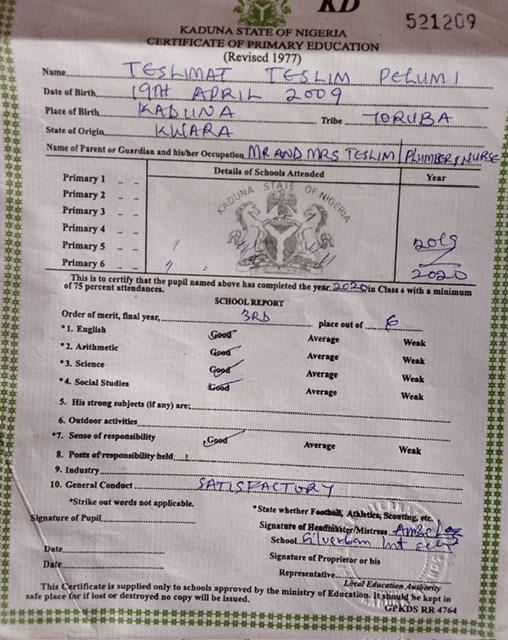 KD
521209
KADUNA STATE OF NIGERIA
CERTIFICATE OF PRIMARY EDUCATION
(Revised 1977)
Name TESLIMAT TESLIM PELUMI
Date of Birth 19TH APRIL 2009
Place of Birth KADUNA Tribe YORUBA
State of Origin KWARA
Name of Parent or Guardian and his/her Occupation MR AND MRS TESLIM PLUMBER, NURSE
Details of Schools Attended Year
KADUNA STATE OF NIGERIA
Primary 1
Primary 2
Primary 3
Primary 4
Primary 5 2019
Primary 6 2020
This is to certify that the pupil named above has completed the year 2020 in Class 6 with a minimum
of 75 percent attendances.
SCHOOL REPORT
Order of merit, final year, 3RD place out of 6
*1. English Good Average Weak
*2. Arithmetic Good Average Weak
*3. Science Good Average Weak
*4. Social Studies Good Average Weak
5. His strong subjects (if any) are:
6. Outdoor activities
*7. Sense of responsibility Good Average Weak
8. Posts of responsibility held
9. Industry
10. General Conduct SATISFACTORY
*Strike out words not applicable. *State whether Football, Athletics, Scouting, etc.
Signature of Pupil Signature of Headmaster/Mistress
School Int
Date Signature of Proprietor or his
Date Representative
Local Education Authority
This Certificate is supplied only to schools approved by the ministry of Education. It should be kept in
safe place for if lost or destroyed no copy will be issued.
GPKDS RR 4764